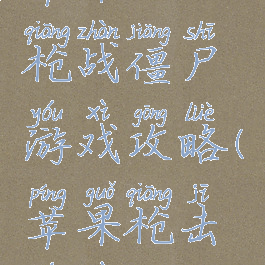 qiāng zhàn jiāng shī
枪战僵尸
yóu xì gōng lüè
游戏攻略(
píng guǒ qiāng jī
苹果枪击